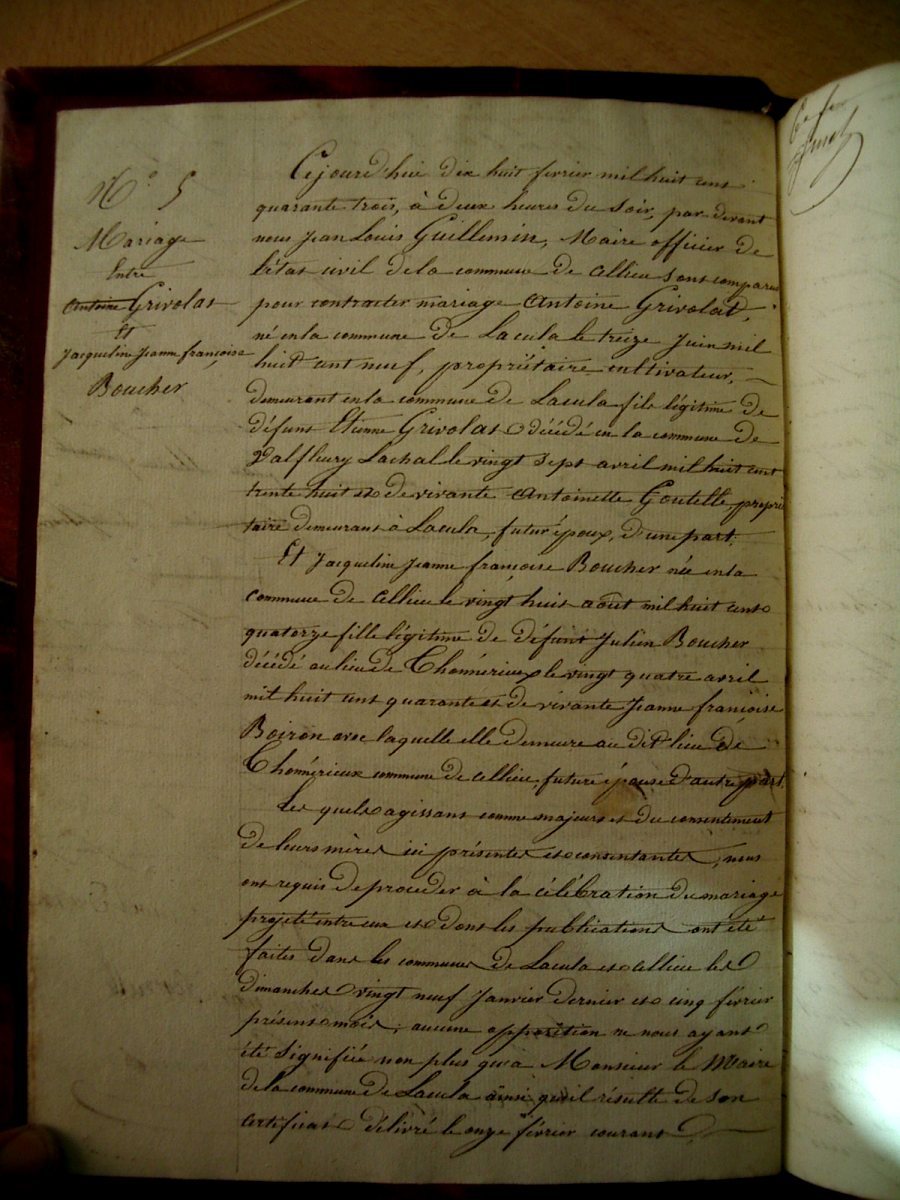 N.° 5
Mariage
Entre
Antoine Grivolat
Et
Jacqueline Jeanne françoise
Boucher
Cejourd'hui dix huit février mil huit cent
quarante trois, à deux heures du soir, par devant
nous Jean Louis Guillemin, Maire officier de
l'état civil de la commune de Cellieu sont comparus
pour contracter mariage Antoine Grivolat,
né en la commune de Lacula le treize Juin mil
huit cent neuf, propriétaire cultivateur,
demeurant en la commune de Lacula fils légitime de
défunt Etienne Grivolat décédé en la commune de
Valfleury Lachal le vingt sept avril mil huit cent
trente huit et de vivante Antoinette Goutelle proprié
taire demeurant à Lacula, futur époux, d'une part.
Et Jacqueline Jeanne françoise Boucher née en la
commune de Cellieu le vingt huit août mil huit cent
quatorze fille légitime de défunt Julien Boucher
décédé au lieu de Chomérieux le vingt quatre avril
mil huit cent quarante et de vivante Jeanne françoise
Boiron avec laquelle elle demeure au dit lieu de
Chomérieux commune de Cellieu, future épouse d'autre part.
Les quels agissant comme majeurs et du consentement
de leurs mères ici présentes et consentantes, nous
ont requis de procéder à la célébration du mariage
projeté entre eux et dont les publications ont été
faites dans les communes de Lacula et Cellieu les
dimanches vingt neuf Janvier dernier et cinq février
présent mois; aucune opposition ne nous ayant
été signifiée non plus qu'à Monsieur le Maire
de la commune de Lacula ainsi qu'il résulte de son
certificat délivré le onze février courant